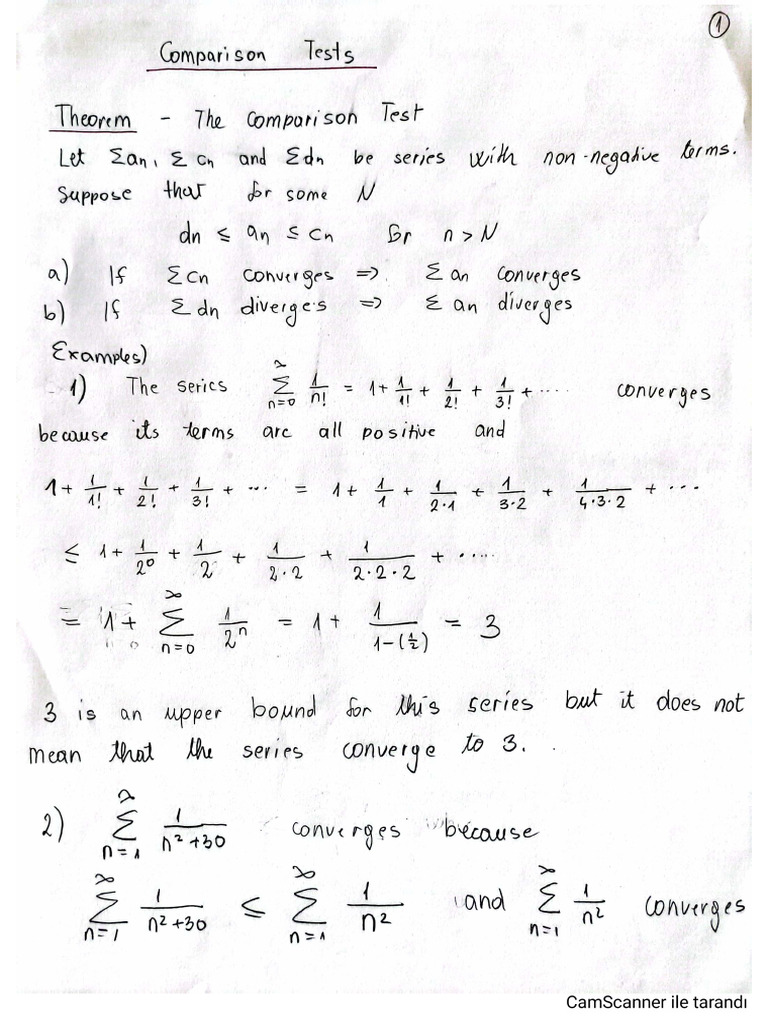 1
Comparison Tests
Theorem - The Comparison Test
Let Σan, Σcn and Σdn be series with non-negative terms.
Suppose that for some N
dn ≤ an ≤ cn for n > N
a) If Σcn converges => Σan converges
b) If Σdn diverges => Σan diverges
Examples)
1) The series ∞ Σ n=0 1/n! = 1 + 1/1! + 1/2! + 1/3! + .... converges
because its terms are all positive and
1 + 1/1! + 1/2! + 1/3! + ... = 1 + 1/1 + 1/2·1 + 1/3·2 + 1/4·3·2 + ...
≤ 1 + 1/2⁰ + 1/2 + 1/2·2 + 1/2·2·2 + ....
= 1 + ∞ Σ n=0 1/2ⁿ = 1 + 1/1-(1/2) = 3
3 is an upper bound for this series but it does not
mean that the series converge to 3.
2) ∞ Σ n=1 1/n²+30 converges because
∞ Σ n=1 1/n²+30 ≤ ∞ Σ n=1 1/n² and ∞ Σ n=1 1/n² converges
CamScanner ile tarandı